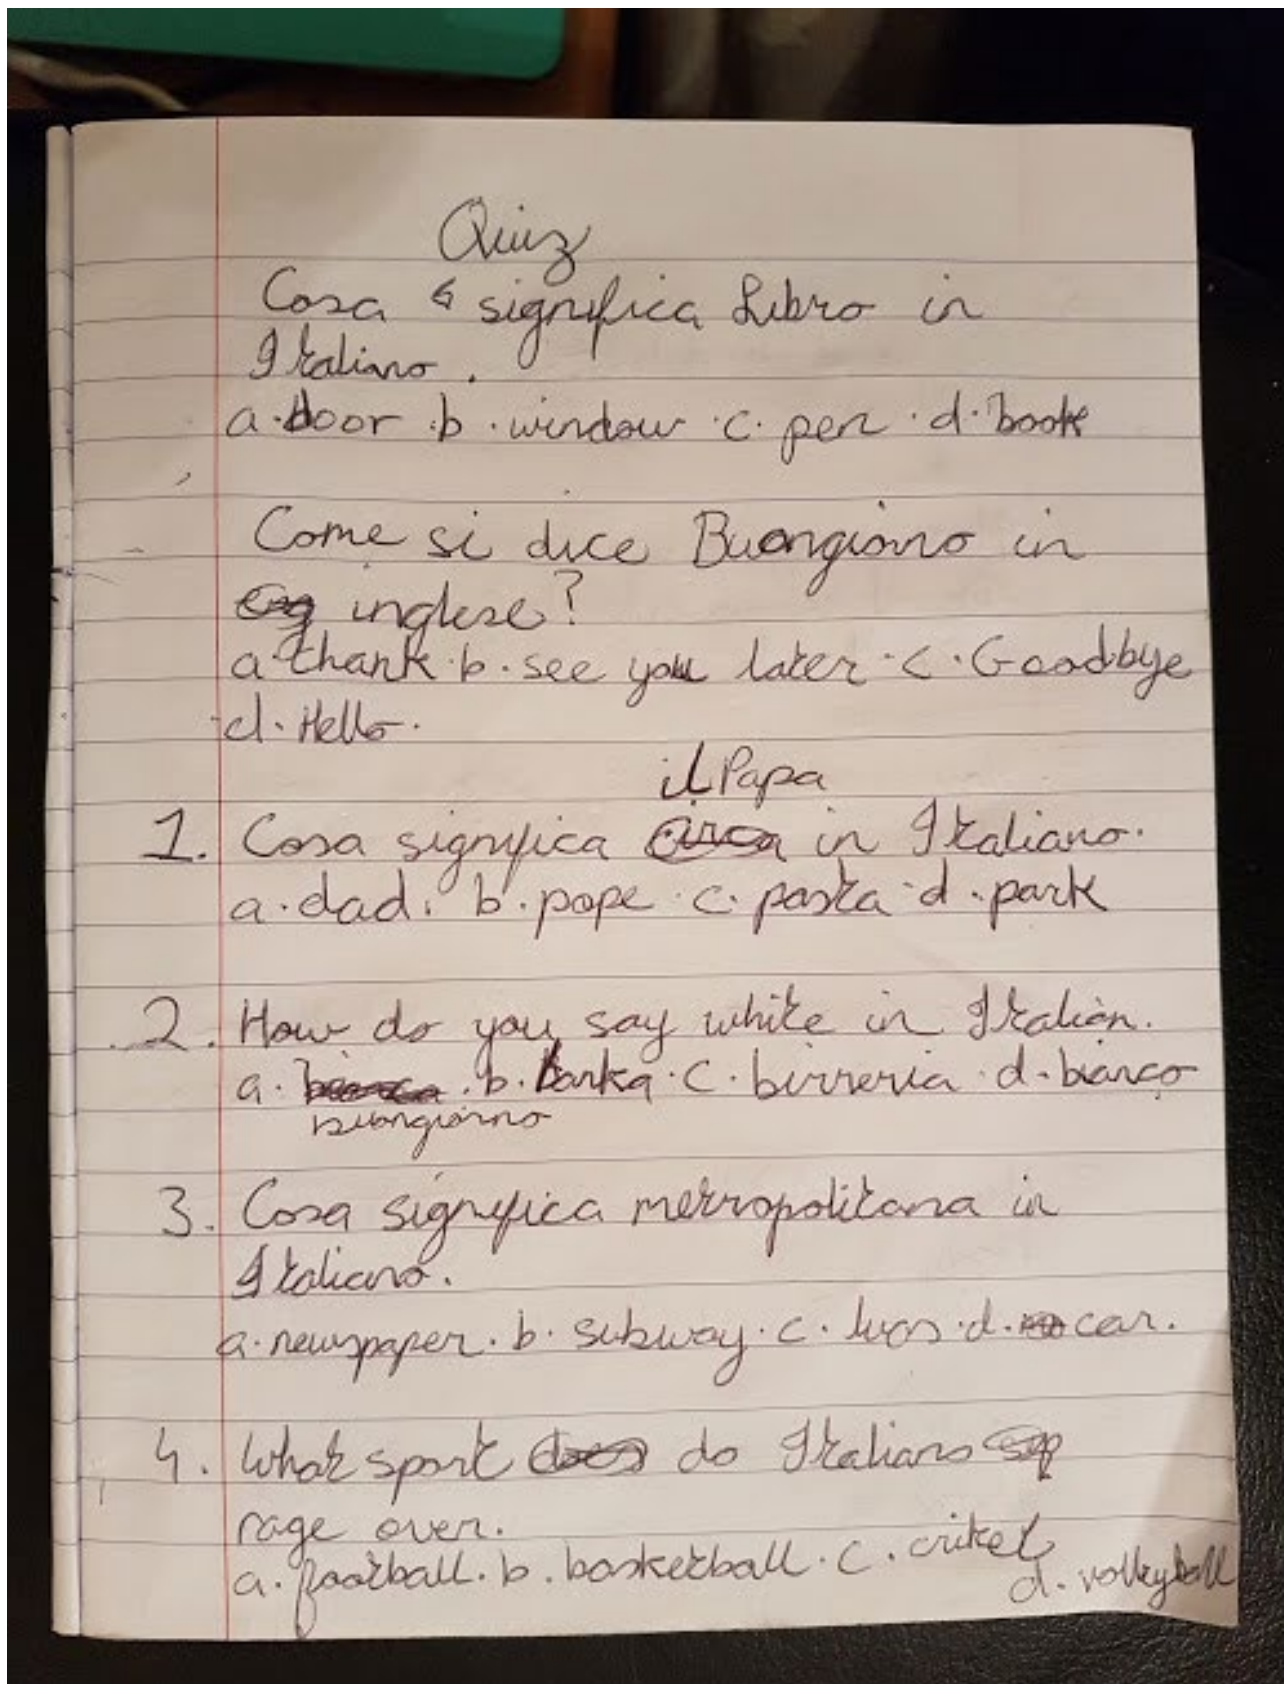 Quiz
Cosa significa Libro in
Italiano.
a. door . b . window . c. pen . d. book
Come si dice Buongiorno in
inglese?
a. thank . b. see you later . c. Goodbye
d. Hello.
il Papa
1. Cosa significa in Italiano.
a. dad. b. pope . c. pasta . d. park
2. How do you say white in Italian.
a. . b. barka . c. birreria . d. bianco
buongiorno
3. Cosa significa metropolitana in
Italiano.
a. newspaper . b. subway . c. . d. car.
4. What sport do Italians
rage over.
a. football . b. basketball . c. criket
d. volleyball